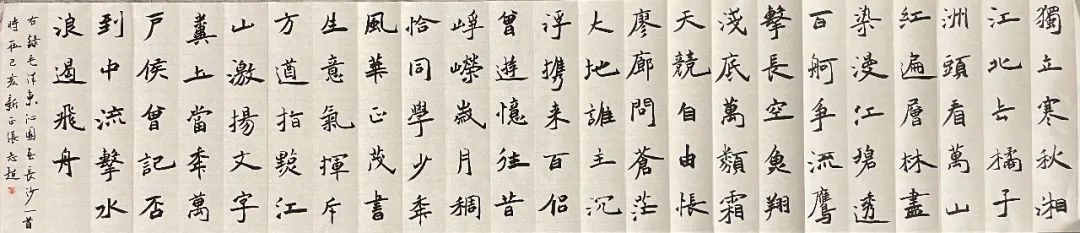 獨立寒秋湘
江北去橘子
洲頭看萬山
紅遍層林盡
染漫江碧透
百舸爭流鷹
擊長空魚翔
淺底萬類霜
天競自由悵
廖廊問蒼茫
大地誰主沉
浮携来百侣
曾遊憶往昔
崢嶸歲月稠
恰同學少年
風華正茂書
生意氣揮斥
方遒指點江
山激揚文字
糞土當年萬
戶侯曾記否
到中流擊水
浪遏飛舟
右録毛澤東沁園春長沙一首
時在己亥新正張志超